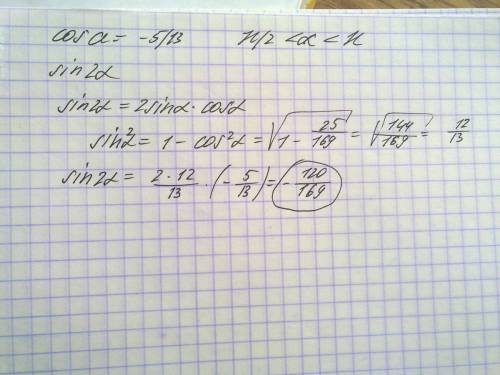 cos α = -5/13 π/2 < α < π
sin2α
sin2α = 2sinα · cosα
sin²α = 1 - cos²α = √(1 - 25/169) = √(144/169) = 12/13
sin2α = 2·12/13 · (-5/13) = -120/169